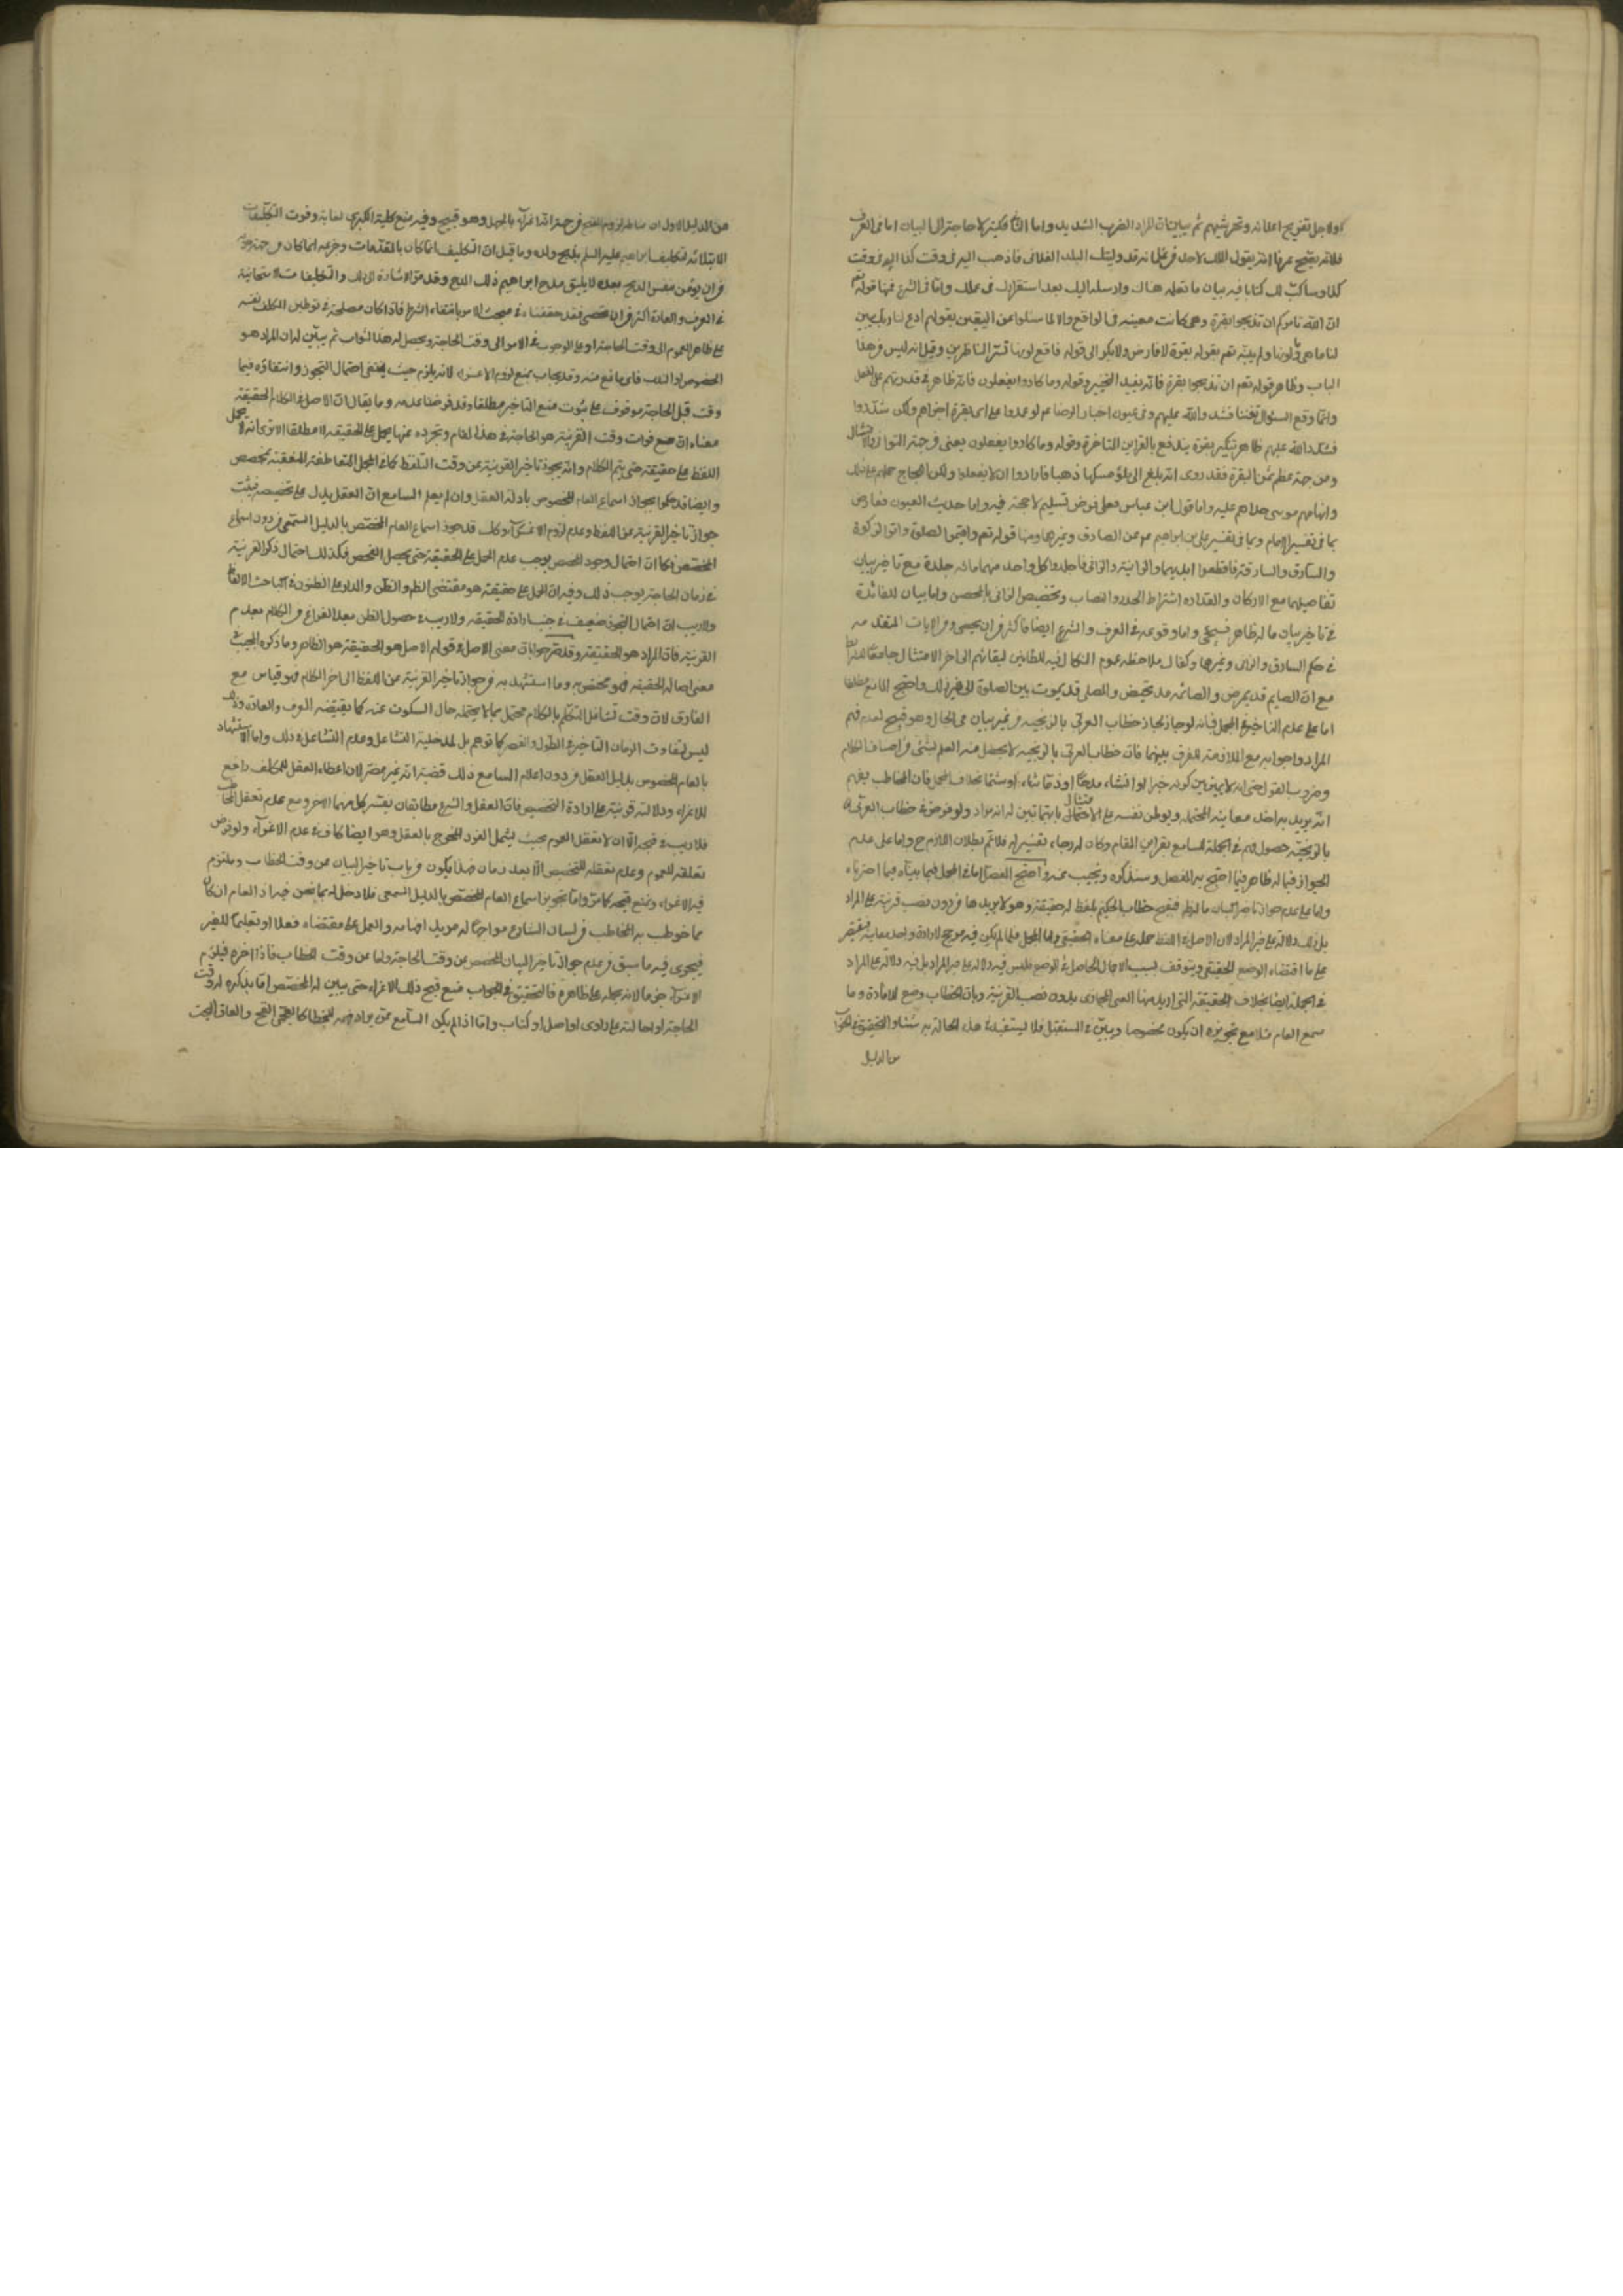 اولاجل تفريح اعدائه وتحريشهم ثم يبين ان المراد الضرب الشديد واما الثا فكثير لا حاجة الى البيان اما فى العرف
فلانه يقبح عرفا انه يقول الملك لاحد من عماله قد وليتك البلد الفلانى فاذهب اليه فى وقت كذا اليه فى وقت
كذا وساكتب لك كتابا فيه بيان ما تعمله هناك وارسله اليك بعد استقرارك فى عملك واما فى الشرع فمنها قوله تعم
ان الله يامركم ان تذبحوا بقرة وهى كانت معينة فى الواقع والا لما سئلوا عن اليقين بقولهم ادع لنا ربك يبين
لنا ما هى وما لونها ولم يبينه تعم بقوله بقرة لا فارض ولا بكر الى قوله فاقع لونها تسر الناظرين وقيل انه ليس من هذا
الباب وظاهر قوله تعم ان تذبحوا بقرة فانه يفيد التخيير وقوله وما كادوا يفعلون فانه ظاهر فى قدرتهم على الفعل
وانما وقع السؤال تعنتا فشدد الله عليهم وفى عيون اخبار الرضا عم لو عمدوا على اى بقرة اجزاهم ولكن شددوا
فشدد الله عليهم ظاهر تنكير بقرة يندفع بالقراين المتاخرة وقوله وما كادوا يفعلون يعنى من جهة التوانى فى الامتثال
ومن جهة عظم ثمن البقرة فقد روى انه بلغ الى ملؤ مسكها ذهبا فارادوا ان لا يفعلوا ولكن اللجاج حملهم على ذلك
واتهامهم موسى حداهم عليه واما قول ابن عباس فعلى فرض تسليمه لا حجة فيه واما حديث العيون فمعارض
بما فى تفسير الامام وبما فى تفسير على بن ابراهيم عم عن الصادق وغيرها ومنها قوله تعم واقيموا الصلوة واتوا الزكوة
والسارق والسارقة فاقطعوا ايديهما والزانية والزانى فاجلدوا كل واحد منهما مائة جلدة مع تاخير بيان
تفاصيلها مع الاركان والمقدار واشتراط الحرز والنصاب وتخصيص الزانى بالمحصن واما بيان الفائدة
فى تاخير بيان ما له ظاهر فسيجئ واما وقوعه فى العرف والشرع ايضا فاكثر من ان يحصى ومن الايات المتقدمة
فى حكم السارق والزانى وغيرها وكفاك ملاحظة عموم التكاليف للظانين لبقائهم الى اخر الامتثال جامعا للشرايط
مع ان الصايم قد يمرض والصائمة قد تحيض والمصلى قد يموت بين الصلوة الى غير ذلك واحتج المانع مطلقا
اما على عدم التاخير فى المجمل فبانه لو جاز لجاز خطاب العربى بالزنجية من غير بيان فى الحال وهو قبيح لعدم فهم
المراد وجوابه مع الملازمة للفرق بينهما فان خطاب العربى بالزنجية لا يحصل منه العلم بشئ من اصناف الكلام
وضروب القول حتى انه لا يميز بين كونه خبرا او انشاء مدحا او ذما ثناء او شتما بخلاف المجمل فان المخاطب يفهم
انه يريد به احد معانيه المحتملة ويوطن نفسه على الامتثال بايتها تبين له انه مراد ولو فرض فى خطاب العربى
بالزنجية حصول فهم فى الجملة للسامع بقراين المقام وكان له رجاء تفسيره فلا نم بطلان اللازم ح واما على عدم
الجواز فيما له ظاهر فبما احتج به المفصل وسنذكره ونجيب عنه واحتج المفصل اما فى المجمل فبما بيناه فيما اخترناه
واما على عدم جواز تاخير البيان ما له ظاهر فبقبح خطاب الحكيم بلفظ له حقيقة وهو لا يريدها من دون نصب قرينة على المراد
بل ذلك دلالة على غير المراد لان الاصل فى اللفظ حمله على معناه الحقيقى واما المجمل فلما لم يكن فيه مرجح لارادة واحد معانيه فيقتصر
على ما اقتضاه الوضع الحقيقى ويتوقف بسبب الاجمال الحاصل فى الوضع فليس فيه دلالة على غير المراد بل فيه دلالة على المراد
فى الجملة ايضا بخلاف الحقيقة التى اريد منها المعنى المجازى بدون نصب القرينة وبان الخطاب وضع للافادة وما
سمع العام فلا مع تجويزه ان يكون مخصوصا ويبين فى المستقبل فلا يستفيد فى هذه الحالة به شيئا والتحقيق فى الجواب
من الدليل
من الدليل الاول ان مناط لزوم القبح من جهة انه اغراء بالجهل وهو قبيح وفيه منع كلية الكبرى لغاية وقوت التكليفات
الابتلائية لتكليف ابراهيم عليه السلم بذبح ولده وما قيل ان التكليف انما كان بالمقدمات وجزعه انما كان من جهة خوف
من ان يؤمن بنفس الذبح بعده لا يليق مدح ابراهيم ذلك المدح وقد مر الاشارة الى ذلك والتكليفات الامتحانية
فى العرف والعادة اكثر من ان تحصى فقد حققناه فى مبحث الامر بانتفاء الشرط فاذا كان مصلحة فى توطين المكلف نفسه
على ظاهر العموم الى وقت الحاجة او على الوجوب فى الامر الى وقت الحاجة ويحصل له هذا الثواب ثم يبين له ان المراد هو
الخصوص او الندب فاى مانع منه وقد يجاب بمنع لزوم الاغراء لانه يلزم حيث ينتفى احتمال التجوز وانتفاؤه فيما
وقت قبل الحاجة موقوف على ثبوت منع التاخير مطلقا وقد فرضنا عدمه وما يقال ان الاصل فى الكلام الحقيقة
معناه ان مع فوات وقت القرينة هو الحاجة فى هذا المقام وتجرده عنها يحمل على الحقيقة لا مطلقا الا ترى انه لا يحمل
اللفظ على حقيقته حتى يتم الكلام وانه يجوز تاخير القرينة عن وقت التلفظ كما فى الجمل المتعاطفة المتعقبة بمخصص
وايضا قد حكموا بجواز اسماع العام المخصوص بادلة العقل وان لم يعلم السامع ان العقل يدل على تخصيصه فيثبت
جواز تاخير القرينة عن اللفظ وعدم لزوم الاغراء وكك قد جوز اسماع العام المخصص بالدليل السمعى من دون اسماع
المخصص فكما ان احتمال وجود المخصص يوجب عدم الحمل على الحقيقة حتى يحصل الفحص فكذلك احتمال ذكر القرينة
فى زمان الحاجة يوجب ذلك وفيه ان الحمل على حقيقته هو مقتضى الظهور والظن والمدار على الظنون فى مباحث الالفاظ
ولا ريب ان احتمال التجوز ضعيف فى جنب ارادة الحقيقة ولا ريب فى حصول الظن بعد الفراغ من الكلام بعدم
القرينة فان المراد هو الحقيقة وقد مر جوابا ان معنى الاصل فى قولهم الاصل هو الحقيقة هو الظاهر وما ذكره المجيب
معنى اصالة الحقيقة فهو مخصص به وما استشهد به من جواز تاخير القرينة عن اللفظ الى اخر الكلام فهو قياس مع
الفارق لان وقت تشاغل المتكلم بالكلام محتمل لما لا يحتمله حال السكوت عنه كما يقتضيه العرف والعادة وذلك
ليس لتفاوت الزمان التاخير فى الطول والقصر كما توهم بل لمدخلية التشاغل وعدم التشاغل فى ذلك واما الاستشهاد
بالعام المخصوص بدليل العقل من دون اعلام السامع ذلك فضيه انه غير مضر لان اعطاء العقل للمكلف دافع
للاغراء ودلالته قرينة على ارادة التخصيص فان العقل والشرع مطابقان يفسر كل منهما الاخر ومع عدم تعقل المخاطب
فلا ريب فى قبحه الا ان لا يتعقل العموم بحيث يشمل الفرد المخرج بالعقل وهو ايضا كاف فى عدم الاغراء ولو فرض
تعلقه للعموم وعدم تعقله للتخصيص الا بعد زمان فهذا يكون من باب تاخير البيان عن وقت الخطاب ونلتزم
فيه الاغراء ونمنع قبحه كما مر واما تجويز اسماع العام المخصص بالدليل السمعى فلا دخل له بما نحن فيه اذ العام ان كان
مما خوطب به المخاطب من لسان الشارع مواجها له مريدا افهامه والعمل على مقتضاه فعلا او تعليما للغير
فيجرى فيه ما سبق من عدم جواز تاخير البيان المخصص عن وقت الحاجة واما عن وقت الخطاب فاذا اخره فيلزم
الاغراء ح مالا نه يحمله على ظاهره فالتحقيق فى الجواب منع قبح ذلك الاغراء حتى يبين له المخصص اما بذكره له وقت
الحاجة او احالته على راوى او اصل او كتاب واما اذا لم يكن السامع ممن يراد فهمه للخطاب كالعجمى القح والعامى البحت